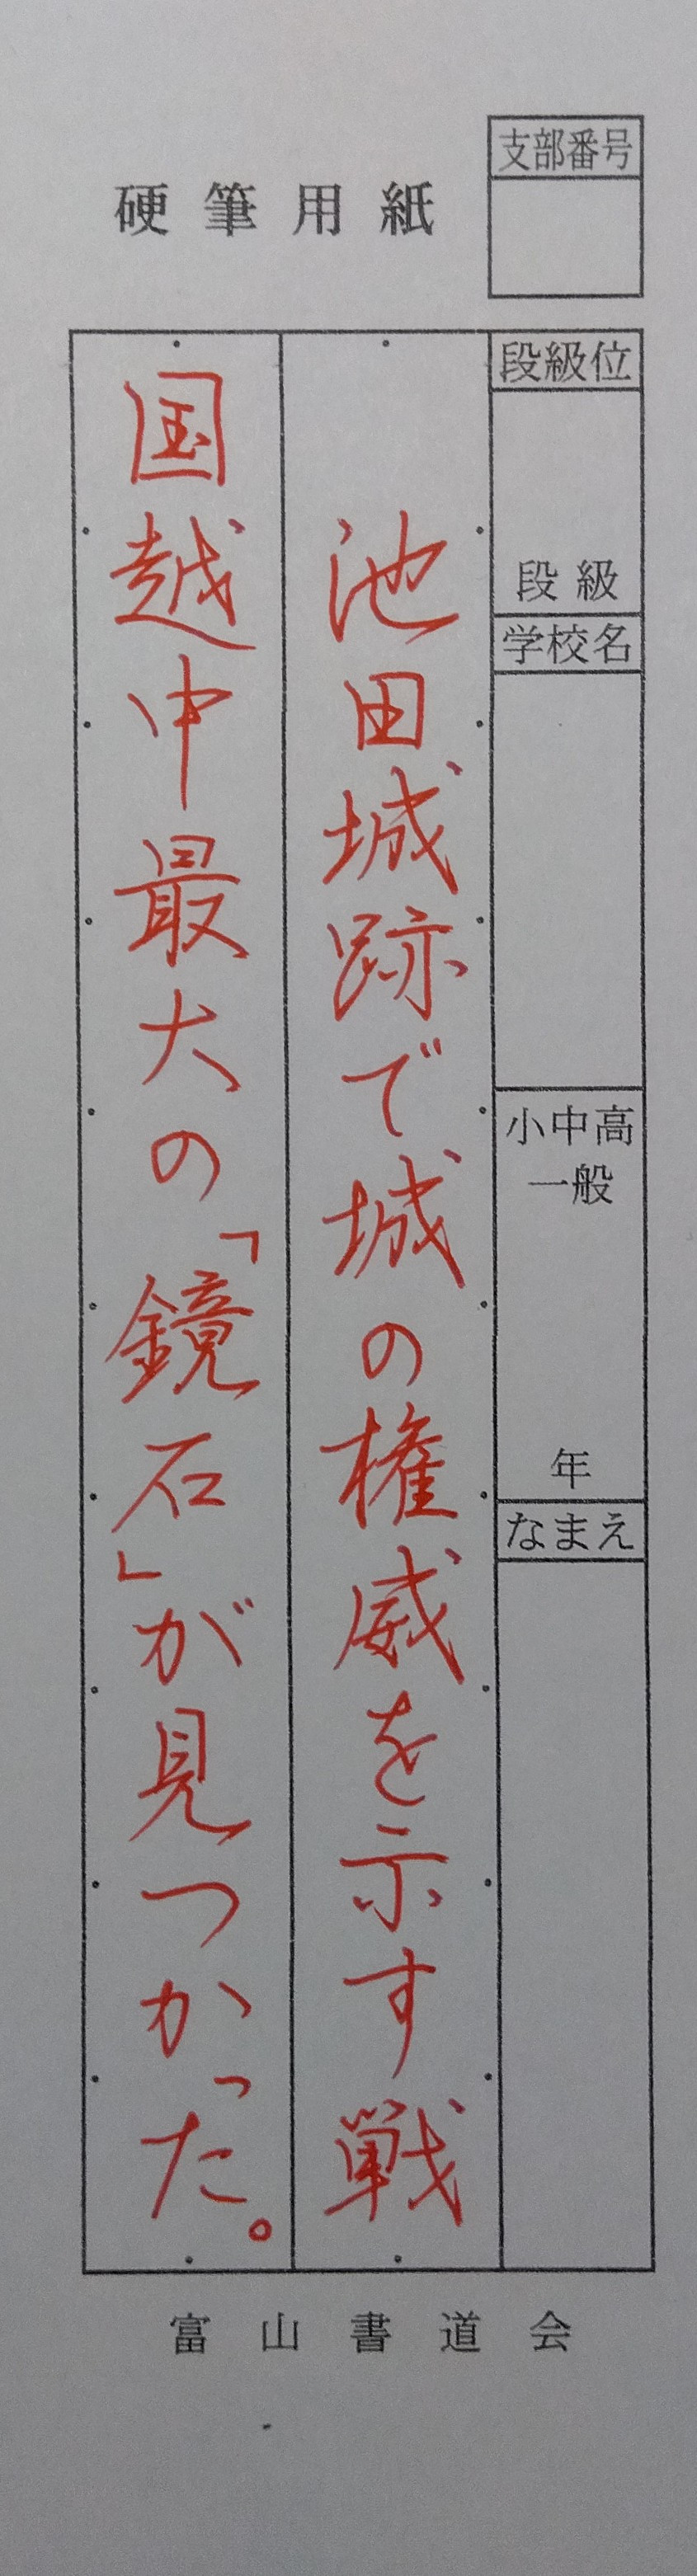 硬筆用紙
支部番号
段級位
段級
学校名
小中高
一般
年
なまえ
池田城跡で城の権威を示す戦
国越中最大の「鏡石」が見つかった。
富山書道会